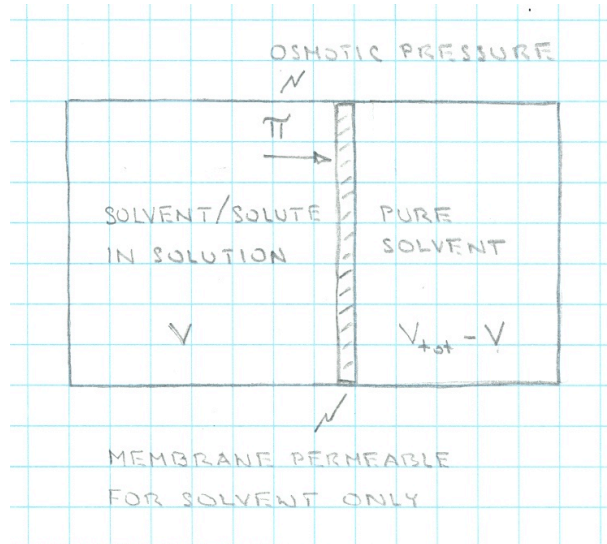 OSMOTIC PRESSURE
π
SOLVENT/SOLUTE
IN SOLUTION
PURE
SOLVENT
V
Vtot - V
MEMBRANE PERMEABLE
FOR SOLVENT ONLY